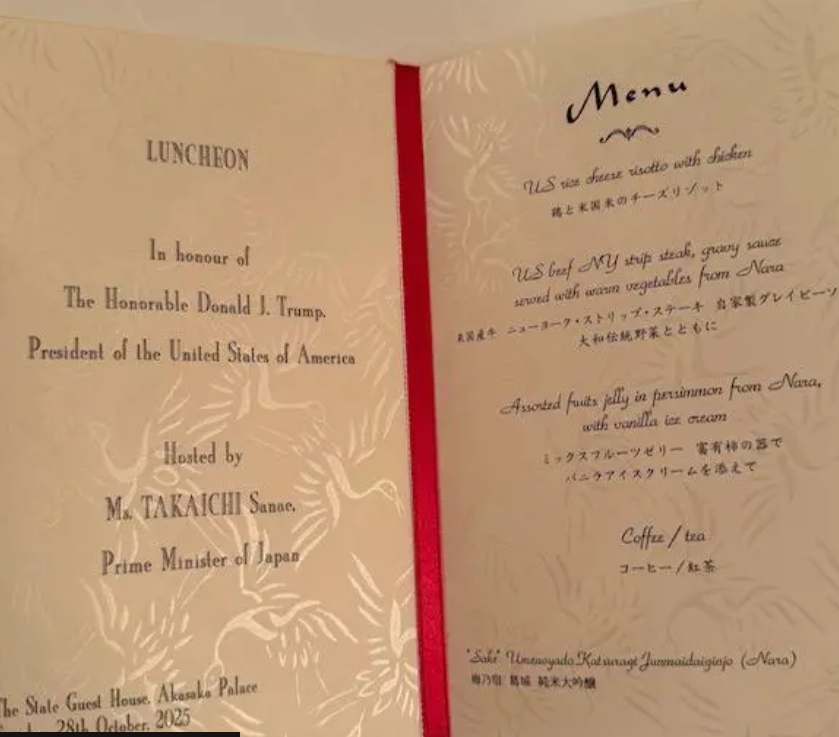 LUNCHEON
In honour of
The Honorable Donald J. Trump,
President of the United States of America
Hosted by
Ms. TAKAICHI Sanae,
Prime Minister of Japan
The State Guest House, Akasaka Palace
28th October, 2025
Menu
US rice cheese risotto with chicken
鶏と米国米のチーズリゾット
US beef NY strip steak, gravy sauce
served with warm vegetables from Nara
米国産牛 ニューヨーク・ストリップ・ステーキ 自家製グレイビーソ
大和伝統野菜とともに
Assorted fruits jelly in persimmon from Nara,
with vanilla ice cream
ミックスフルーツゼリー 富有柿の器で
バニラアイスクリームを添えて
Coffee / tea
コーヒー / 紅茶
"Sake" Umenoyado Katsuragi Junmaidaiginjo (Nara)
梅乃宿 葛城 純米大吟醸